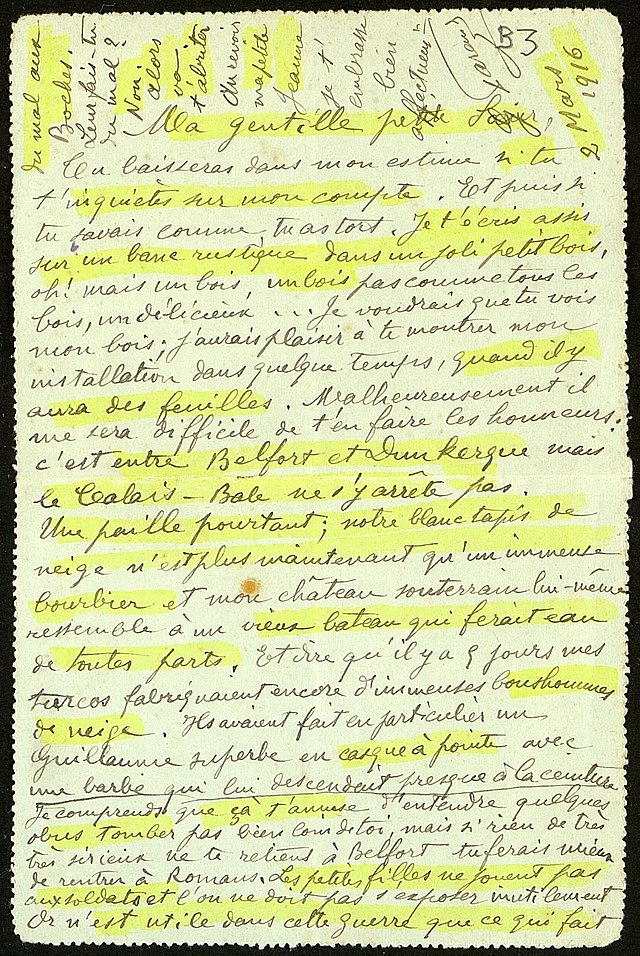 B3
2 Mars 1916
Ma gentille petite Sœur,
Tu baisseras dans mon estime si tu
t'inquiètes sur mon compte. Et puis si
tu savais comme tu as tort. Je t'écris assis
sur un banc rustique dans un joli petit bois,
oh! mais un bois, un bois pas comme tous les
bois, un délicieux ... Je voudrais que tu vois
mon bois; j'aurais plaisir à te montrer mon
installation dans quelque temps, quand il y
aura des feuilles. Malheureusement il
me sera difficile de t'en faire les honneurs:
c'est entre Belfort et Dunkerque mais
le Calais-Bâle ne s'y arrête pas.
Une paille pourtant; notre blanc tapis de
neige n'est plus maintenant qu'un immense
bourbier et mon château souterrain lui-même
ressemble à un vieux bateau qui ferait eau
de toutes parts. Et dire qu'il y a 5 jours mes
turcos fabriquaient encore d'immenses bonshommes
de neige. Ils avaient fait en particulier un
Guillaume superbe en casque à pointe avec
une barbe qui lui descendait presque à la ceinture
Je comprends que çà t'amuse d'entendre quelques
obus tomber pas bien loin de toi, mais si rien de très
très sérieux ne te retient à Belfort tu ferais mieux
de rentrer à Romans. Les petites filles ne jouent pas
aux soldats et l'on ne doit pas s'exposer inutilement
Or n'est utile dans cette guerre que ce qui fait
du mal aux
Boches.
Leur fais-tu
du mal?
Non,
alors
va
t'abriter
Au revoir
ma petite
Jeanne
je t'
embrasse
bien
affectueus<sup>t</sup>